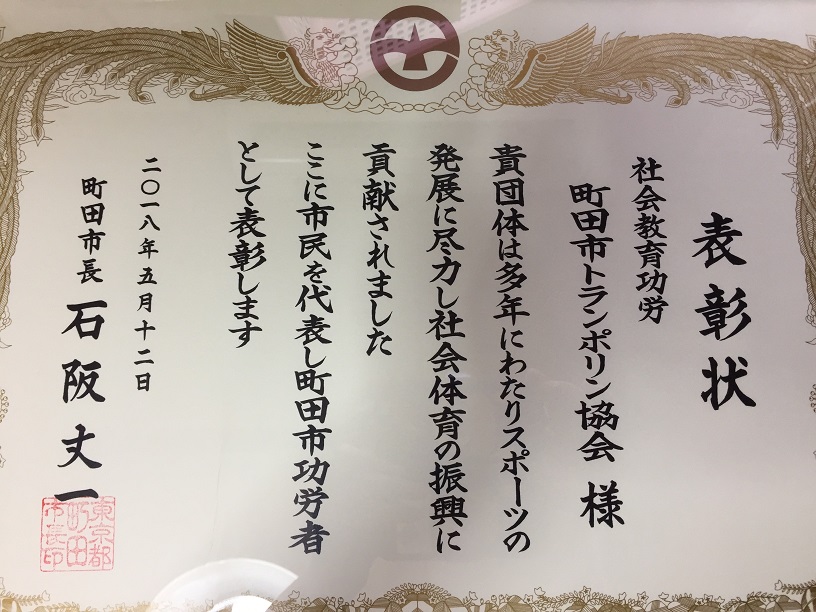 表彰状
社会教育功労
町田市トランポリン協会 様
貴団体は多年にわたりスポーツの
発展に尽力し社会体育の振興に
貢献されました
ここに市民を代表し町田市功労者
として表彰します
二〇一八年五月十二日
町田市長 石阪丈一
東京都
町田
市長印